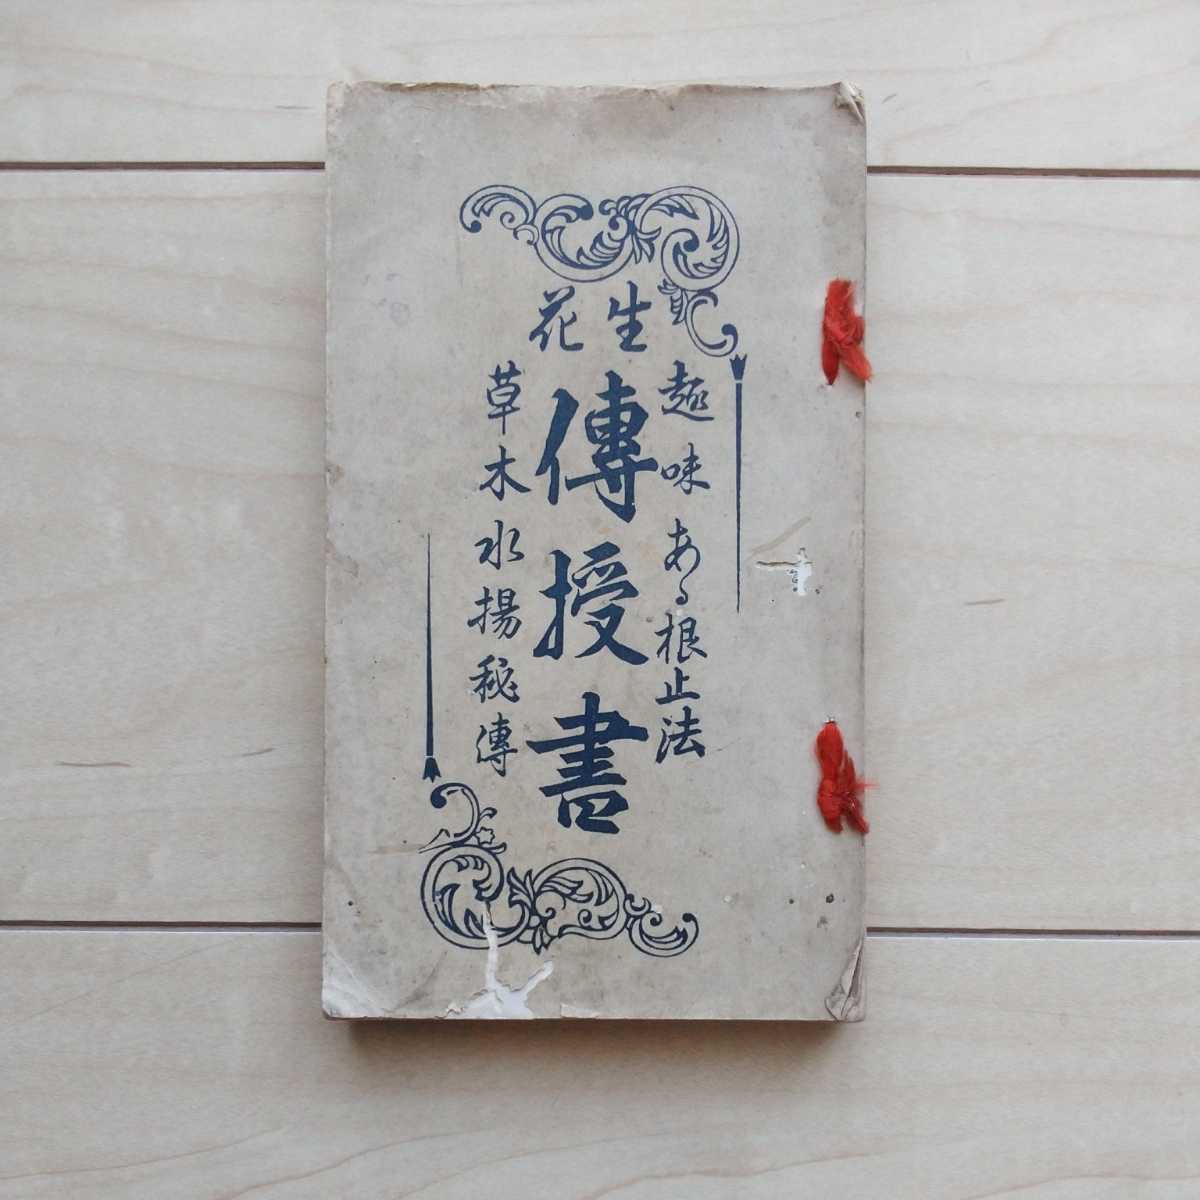 趣味ある根止法
生花
傳授書
草木水揚秘傳